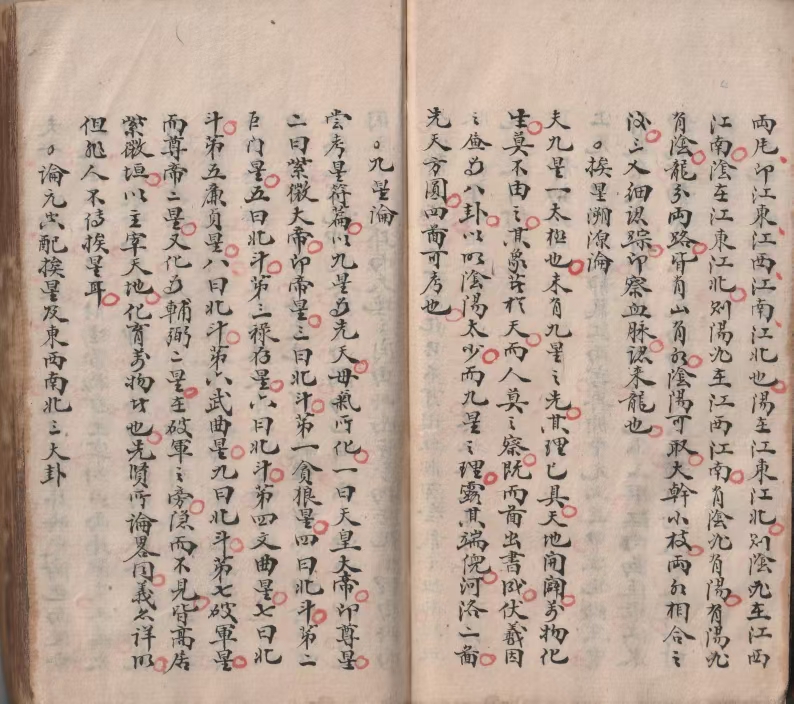 兩片即江東江西江南江北也陽在江東江北則陰必在江西
江南陰在江東江北則陽必在江西江南有陰必有陽有陽必
有陰龍分兩路皆有山有水陰陽可取大幹小枝兩水相合之
㳂三义細認踪即察血脉認来龍也
。挨星溯源論
夫九星一太極也未有九星之先其理已具天地開闢萬物化
生莫不由之其象若於天而人莫之察既而啚出書成伏羲因
之畫爲八卦以明陰陽太少而九星之理露其端倪河洛二啚
先天方圓四啚可考也
。九星論
嘗考星符篇以九星爲先天母氣所化一曰天皇大帝即尊星
二曰紫微大帝即帝星三曰北斗第一貪狼星四曰北斗第二
巨门星五曰北斗第三禄存星六曰北斗第四文曲星七曰北
斗第五廉貞星八曰北斗第六武曲星九曰北斗第七破軍星
而尊帝二星又化爲輔弼二星在破軍之旁隐而不見皆高居
紫微垣以主宰天地化育萬物者也先賢所論畧同義亦詳明
但非人不傳挨星耳
。論元空配挨星及東西南北三大卦